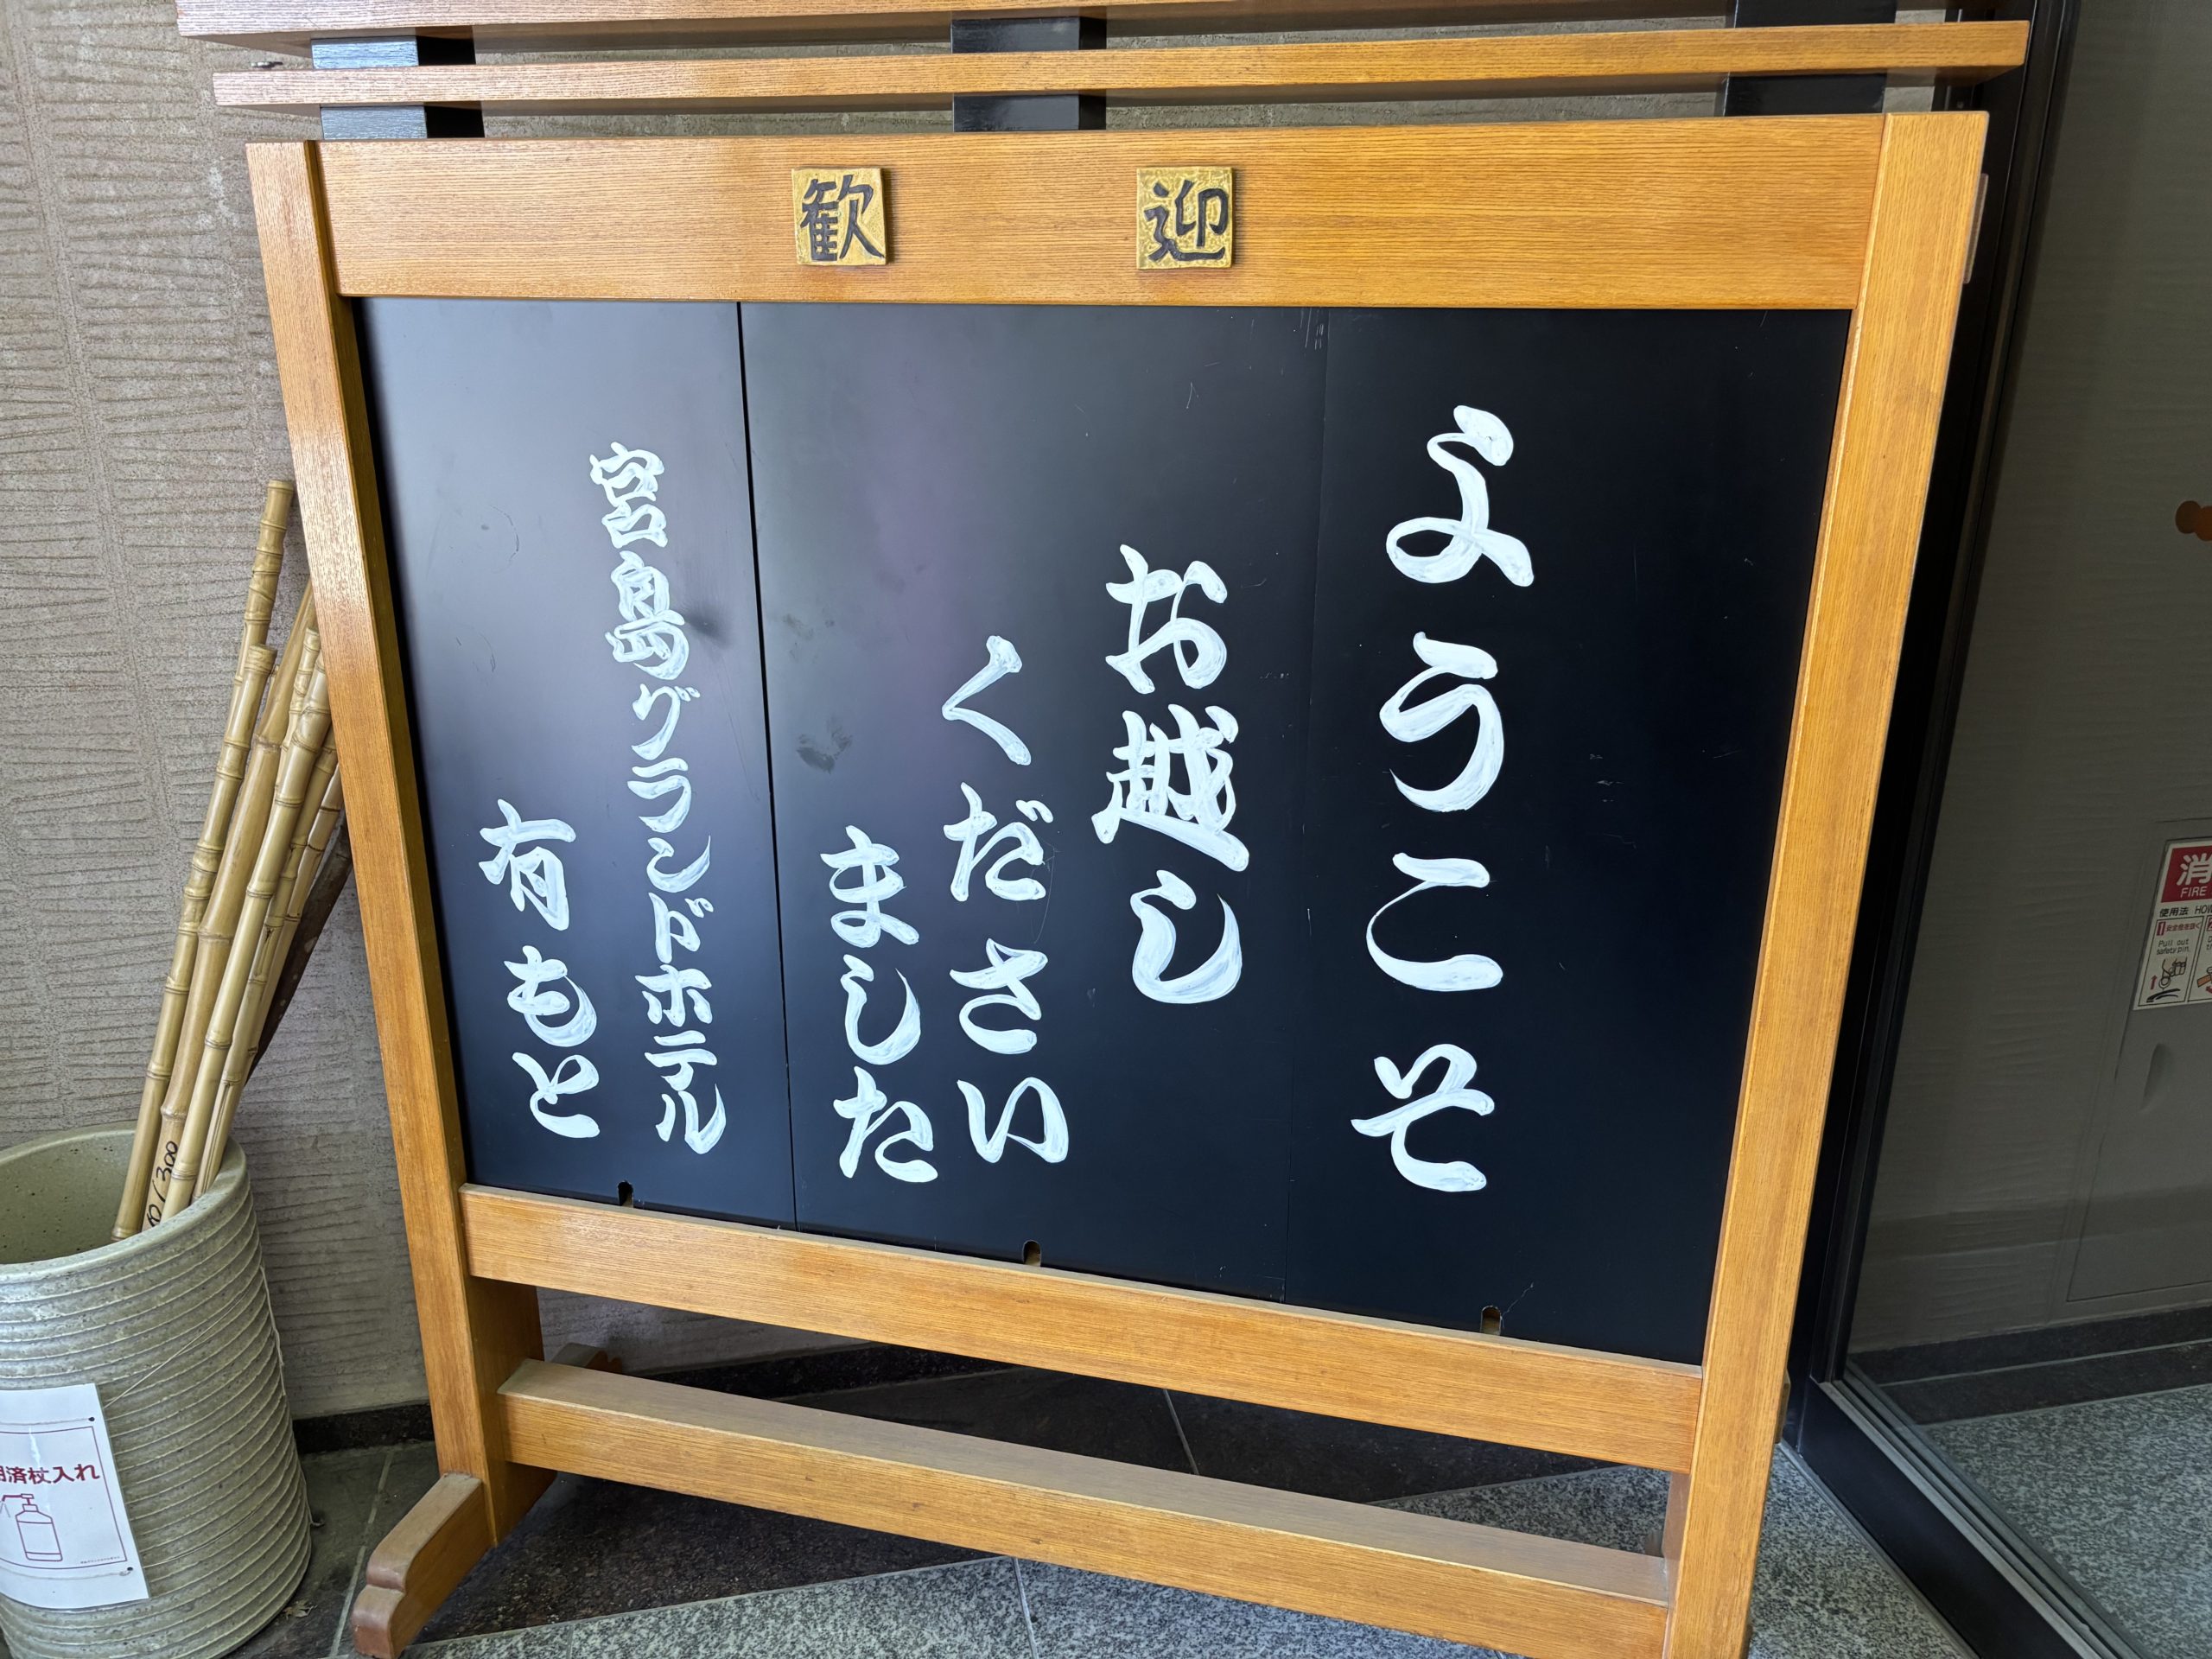 歓迎
ようこそ
お越し
ください
ました
宮島グランドホテル
有もと
済杖入れ
消
FIRE
使用法 HOW
1
Pull out
safety pin.
300